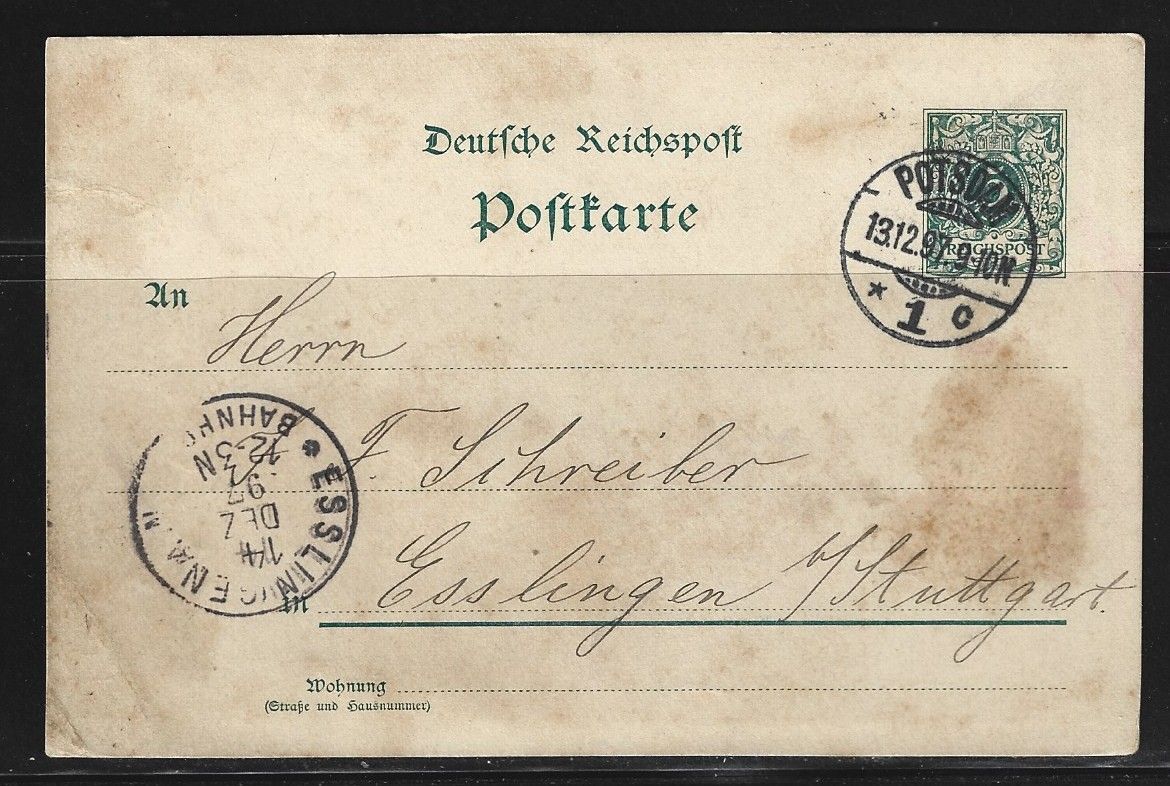 Deutsche Reichspost
Postkarte
REICHSPOST
POTSDAM
13.12.97. 9-10N
* 1 c
An
Herrn
F. Schreiber
ESSLINGEN A. N
BAHNHO
14
DEZ
97
12-3N
in Esslingen b/Stuttgart.
Wohnung
(Straße und Hausnummer)